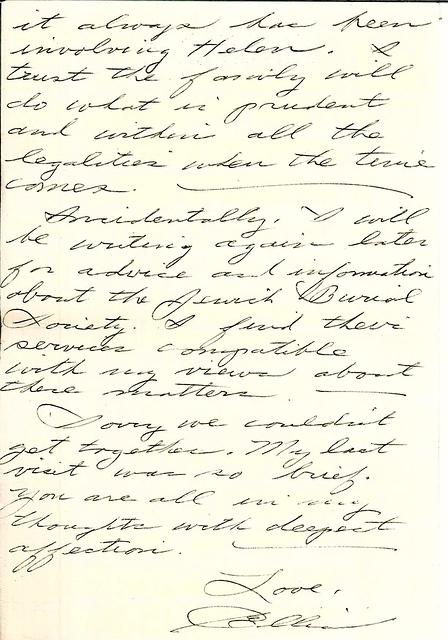 it always has been
involving Helen. I
trust the family will
do what is prudent
and within all the
legalities when the time
comes.
Incidentally, I will
be writing again later
for advice and information
about the Jewish Burial
Society. I find their
services compatible
with my views about
these matters.
Sorry we couldn't
get together. My last
visit was so brief.
You are all in my
thoughts with deepest
affection.
Love,